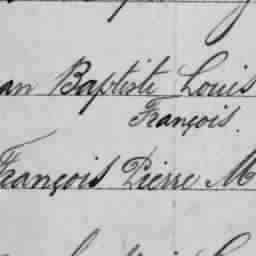 an Baptiste Louis
François.
François Pierre M